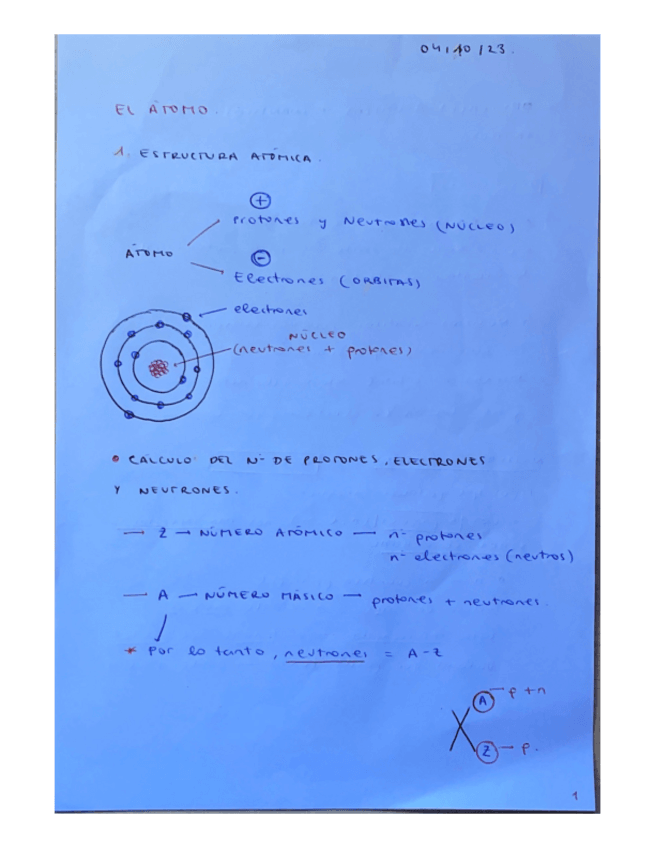 04/10/23.
EL ÁTOMO.
1. ESTRUCTURA ATÓMICA.
+
protones y Neutrones (NÚCLEO)
ÁTOMO
-
Electrones (ORBITAS)
electrones
NÚCLEO
(neutrones + protones)
• CÁLCULO DEL Nº DE PROTONES, ELECTRONES
Y NEUTRONES.
— Z → NÚMERO ATÓMICO — nº protones
nº electrones (neutros)
— A → NÚMERO MÁSICO — protones + neutrones.
* Por lo tanto, neutrones = A-Z
X A — p + n
Z — p.
1